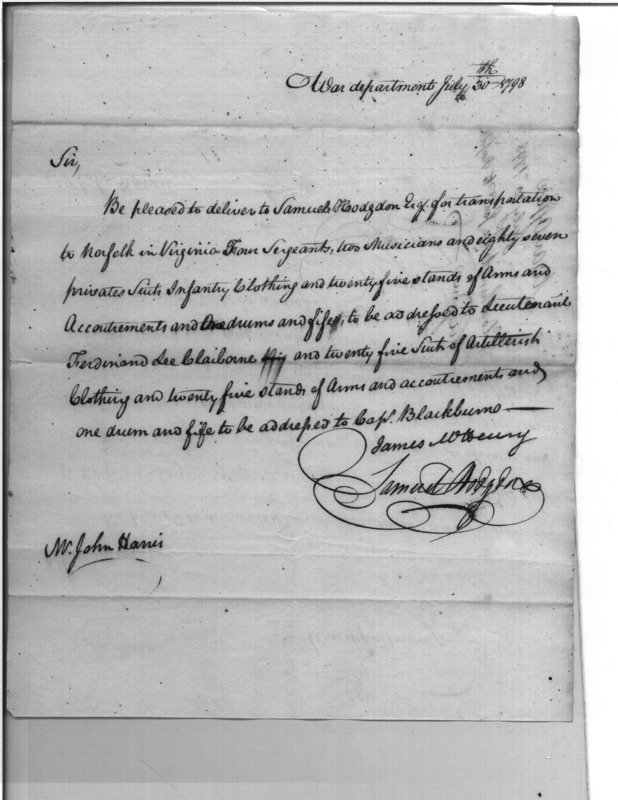 War department July 30th 1798
Sir,
Be pleased to deliver to Samuel Hodgdon Esq. for transportation
to Norfolk in Virginia Four Sergeants, two Musicians and eighty seven
privates Suits Infantry Clothing and twenty five stands of Arms and
Accoutrements and One drums and fifes, to be addressed to Lieutenant
Ferdinand Lee Claiborne and twenty five Suits of Artillerist
Clothing and twenty five stands of Arms and accoutrements and
one drum and fife to be addressed to Capt. Blackburne
James McHenry
Samuel Hodgdon
Mr. John Harris